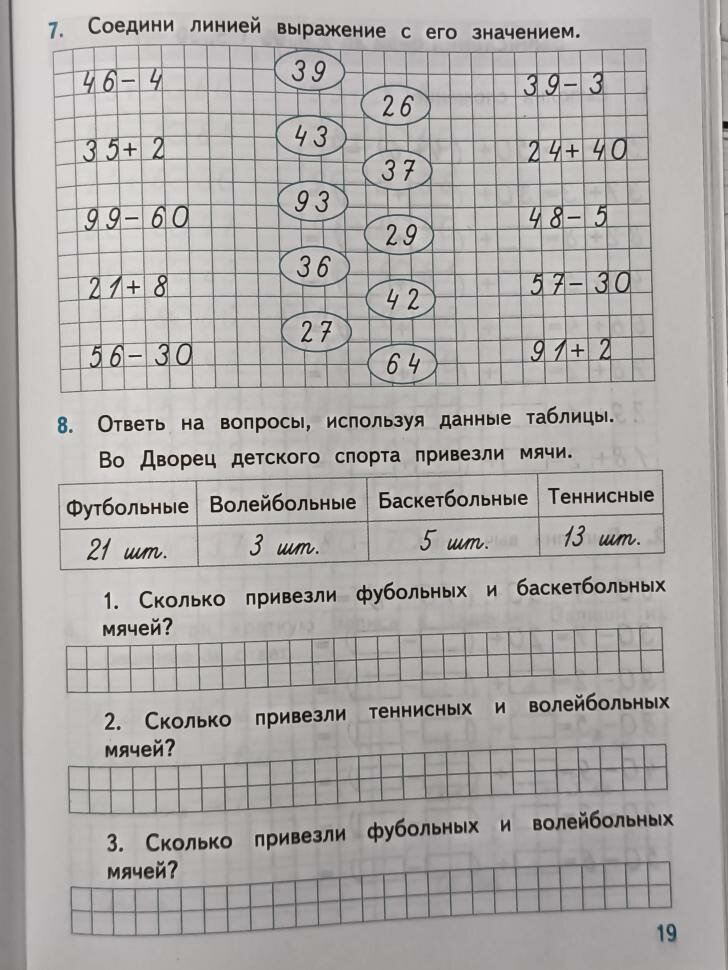 7. Соедини линией выражение с его значением.
46 – 4 39 39 – 3
26
35 + 2 43 24 + 40
37
99 – 60 93 48 – 5
29
21 + 8 36 57 – 30
42
56 – 30 27 91 + 2
64
8. Ответь на вопросы, используя данные таблицы.
Во Дворец детского спорта привезли мячи.
Футбольные Волейбольные Баскетбольные Теннисные
21 шт. 3 шт. 5 шт. 13 шт.
1. Сколько привезли фубольных и баскетбольных
мячей?
2. Сколько привезли теннисных и волейбольных
мячей?
3. Сколько привезли фубольных и волейбольных
мячей?
19